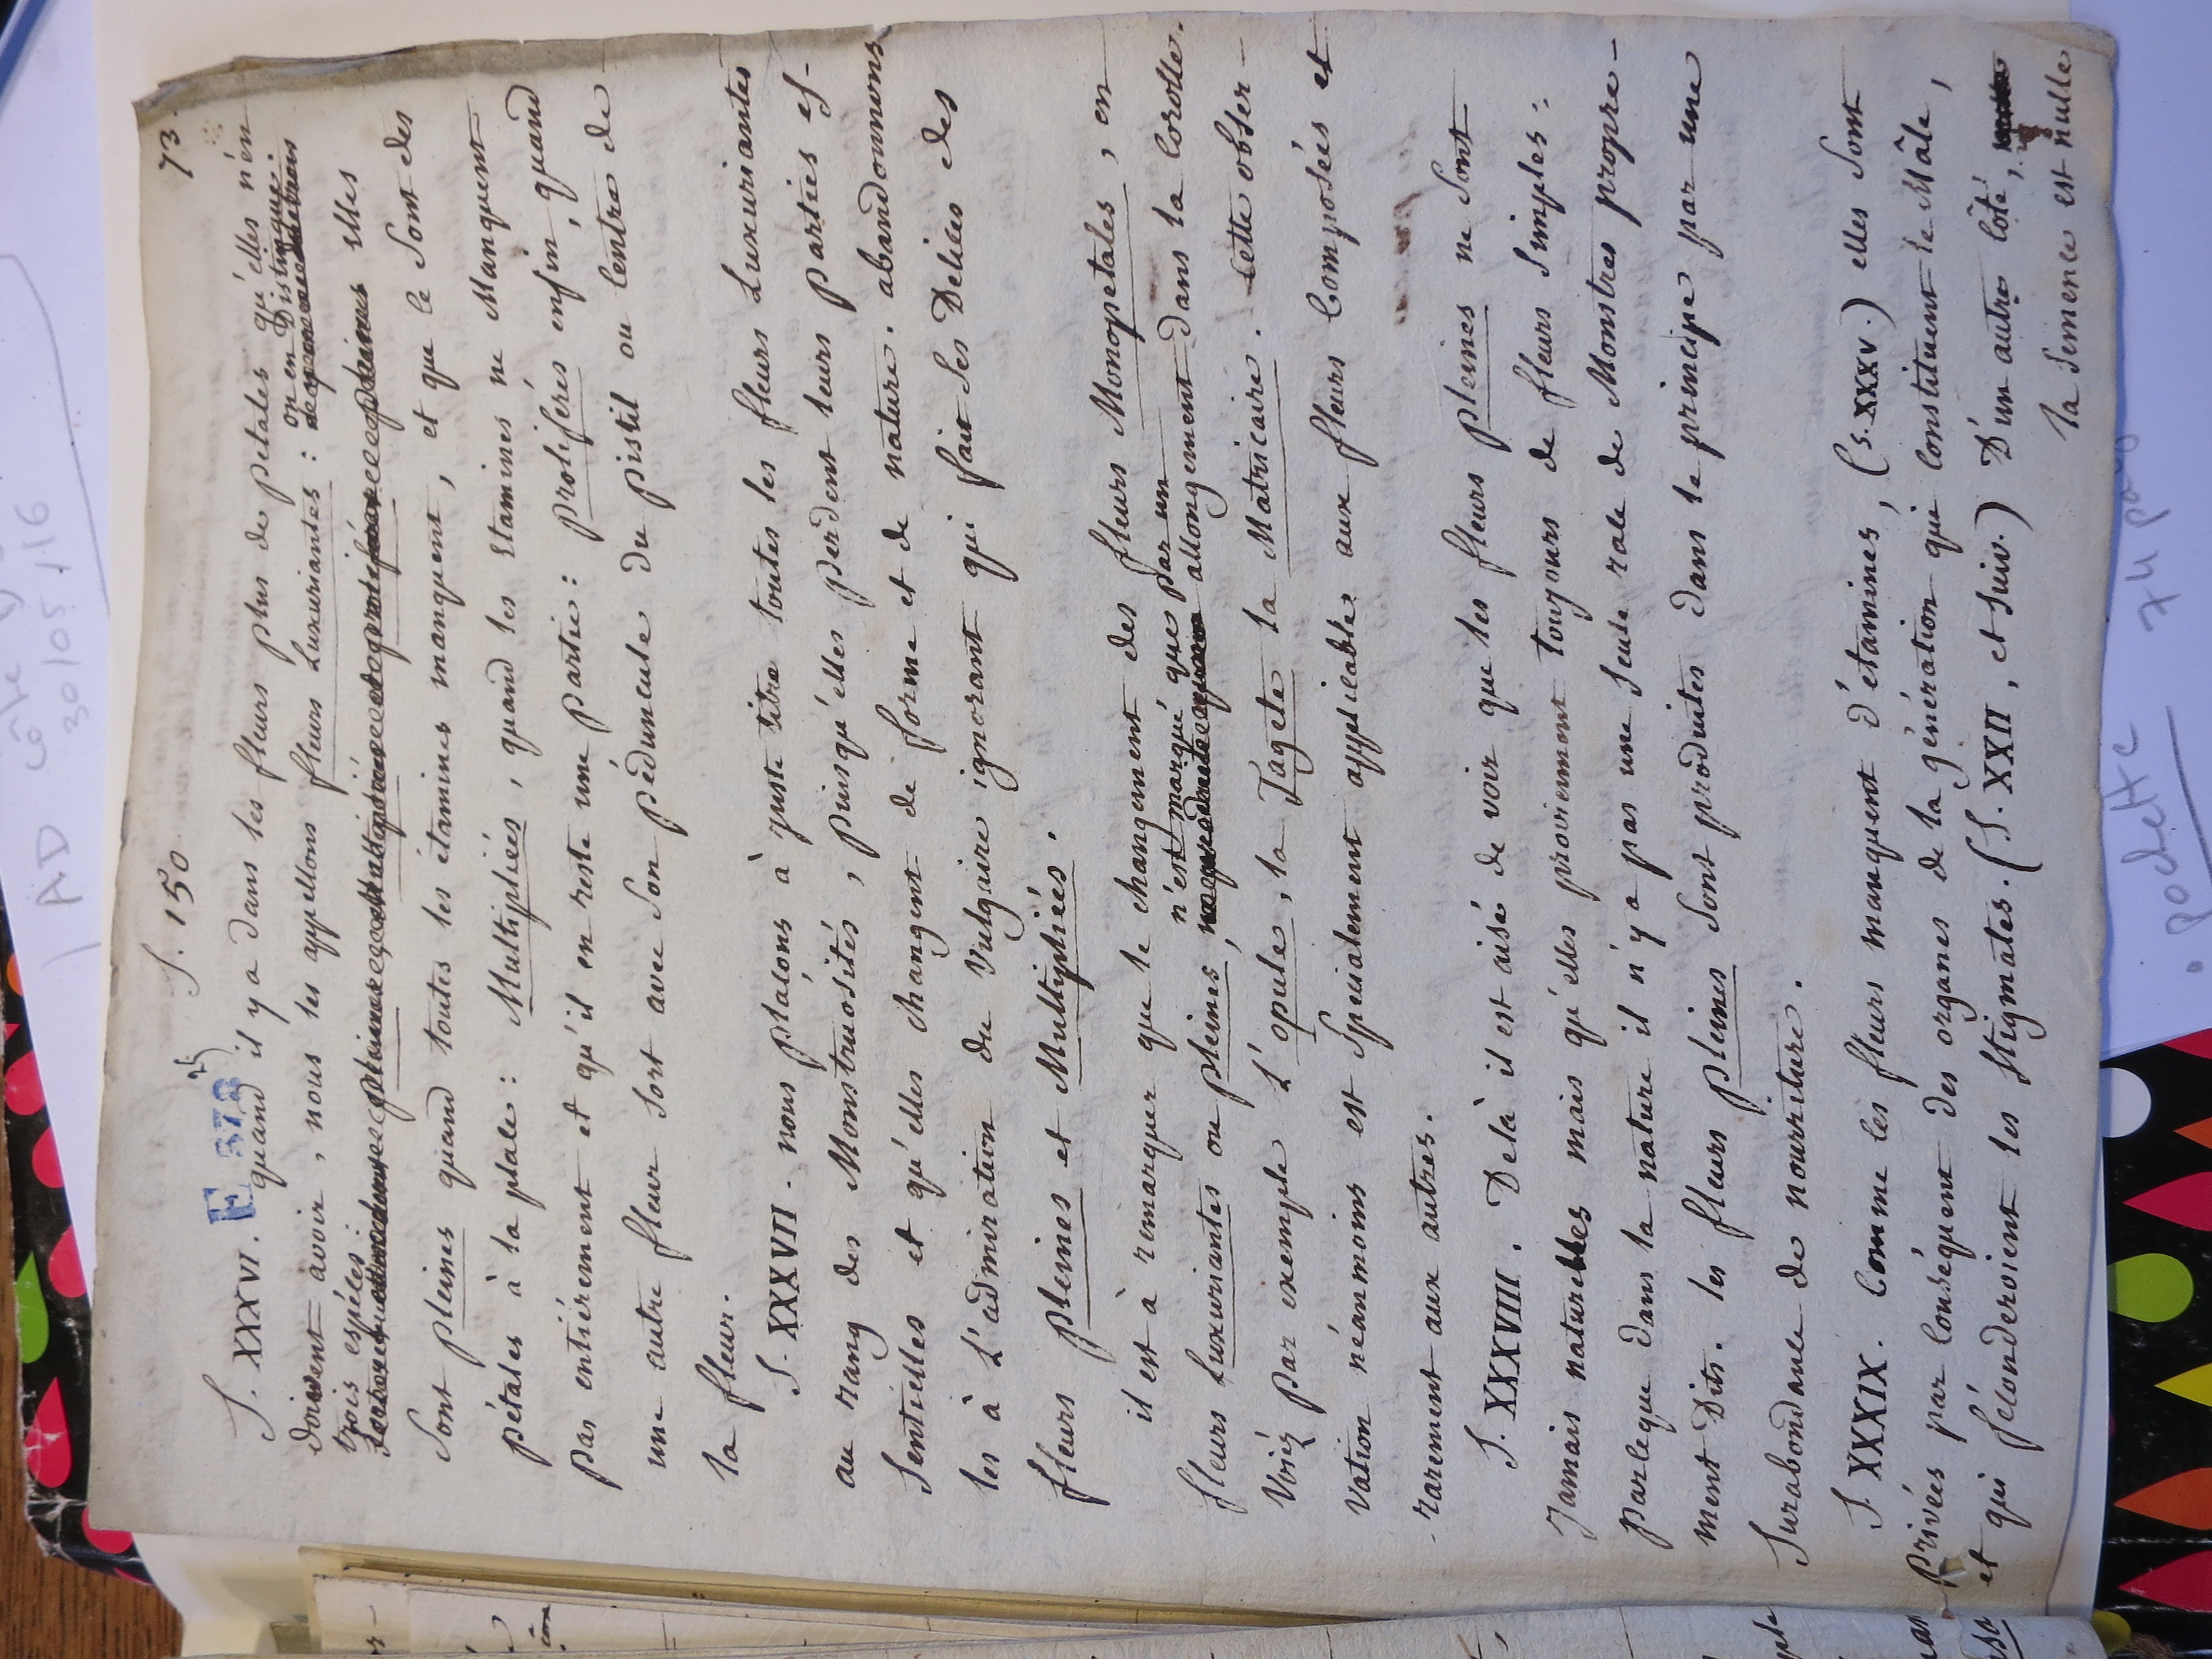 S. 150.
73.
S. XXXVI. quand il y a dans les fleurs plus de pétales qu'elles n'en
doivent avoir, nous les appellons fleurs Luxuriantes : on en Distingue
trois espèces
elles
Sont pleines quand toutes les étamines manquent, et que ce Sont des
pétales à la place : Multipliées, quand les Etamines ne Manquent
pas entiérement et qu'il en reste une partie : prolifères enfin, quand
une autre fleur Sort avec Son péduncule du pistil ou Centre de
la fleur.
S. XXXVII. nous plaçons à juste titre toutes les fleurs Luxuriantes
au rang des Monstruosités, puisqu'elles perdent leurs parties es-
Sentielles et qu'elles changent de forme et de nature. abandonnons
les à L'admiration du Vulgaire ignorant qui fait Ses Délices des
fleurs pleines et Multipliées.
il est à remarquer que le changement des fleurs Monopetales, en
fleurs Luxuriantes ou pleines, n'est marqué que par un allongement dans la Corolle.
Voiéz par exemple L'opule, la Tagete la Matricaire. Cette obser-
vation néanmoins est Spécialement applicable aux fleurs Composées et
rarement aux autres.
S. XXXVIII. Delà il est aisé de voir que les fleurs pleines ne Sont
Jamais naturelles mais qu'elles proviennent toujours de fleurs Simples :
parceque dans la nature il n'y a pas une Seule race de Monstres propre-
ment Dits. les fleurs pleines Sont produites dans le principe par une
Surabondance de nourriture.
S. XXXIX. Comme les fleurs manquent d'étamines, (S. XXXV.) elles Sont
privées par Conséquent des organes de la génération qui constituent le Mâle,
et qui féconderoient les Stigmates. (S. XXII, et Suiv.) D'un autre Côté,
la Semence est nulle
AD côte
30/05/16
pochette
74 pa